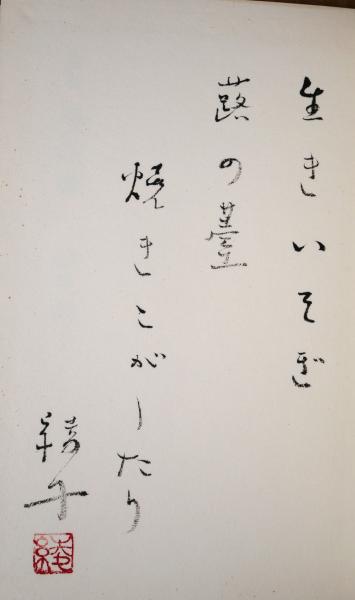 生きいそぎ
蕗の薹
焼きこがしたり
綾子
綾